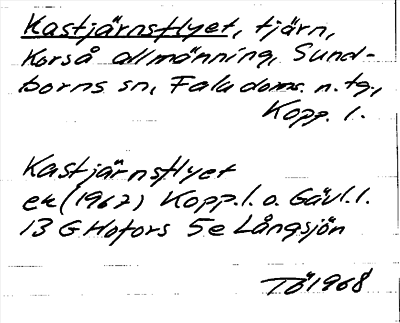 Kastjärnsflyet, tjärn,
Korså allmänning, Sund-
borns sn, Falu doms. n. tg.,
Kopp. l.
Kastjärnsflyet
ek (1962) Kopp. l. o. Gävl. l.
13 G Hofors 5e Långsjön
Tö 1968